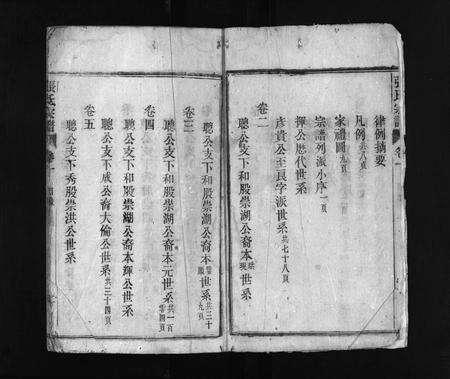 張氏宗譜 卷一
律例摘要
凡例 共八頁
家禮圖 九頁
宗譜列派小序 一頁
擇公歷代世系
彥貴公至良字派世系 共七十八頁
卷二
聰公支下和股崇湖公裔本 世系
聰公支下和股崇湖公裔本 世系 共三十九頁
卷三
聰公支下和股崇湖公裔本元世系 共一百零四頁
卷四
聰公支下和股崇湖公裔本輝公世系
聰公支下咸公裔大倫公世系 共三十四頁
卷五
聰公支下秀股崇洪公世系
張氏宗譜 卷一